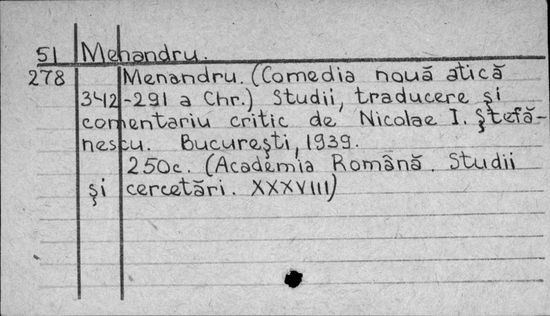 51 Menandru.
278 Menandru. (Comedia nouă atică
342-291 a Chr.) Studii, traducere şi
comentariu critic de Nicolae I. Ştefă-
nescu. Bucureşti, 1939.
250c. (Academia Română. Studii
şi cercetări. XXXVIII)